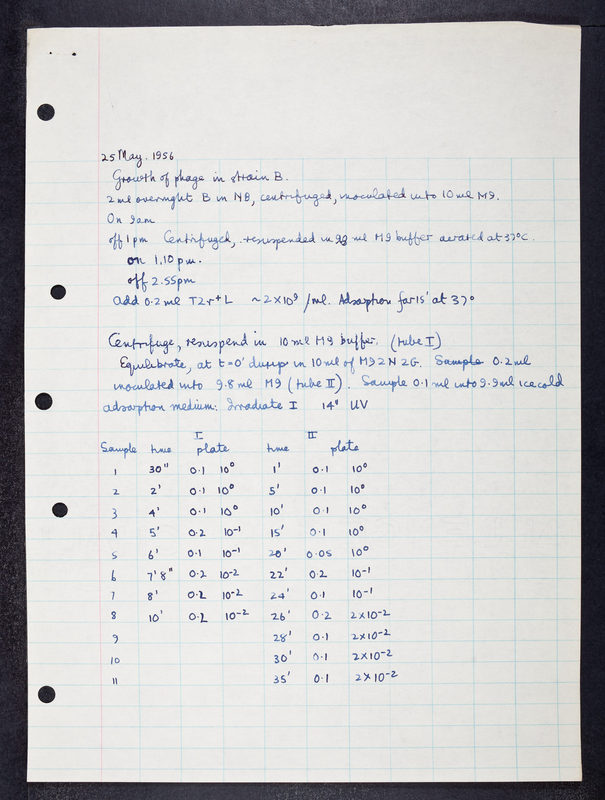 25 May. 1956
Growth of phage in strain B.
2 ml overnight B in NB, centrifuged, inoculated into 10 ml M9.
On 9am
off 1 pm Centrifuged, resuspended in ml M9 buffer aerated at 37°C.
on 1.10 pm.
off 2.55pm
add 0.2 ml T2r+L ~2×10⁹ /ml. Adsorption for 15' at 37°
Centrifuge, resuspend in 10 ml M9 buffer. (tube I)
Equilibrate, at t=0' dump in 10 ml of M9 2N 2G. Sample 0.2 ml
inoculated into 9.8 ml M9 (tube II). Sample 0.1 ml into 9.9 ml ice cold
adsorption medium. Irradiate I 14" UV
I II
Sample time plate time plate
1 30" 0.1 10⁰ 1' 0.1 10⁰
2 2' 0.1 10⁰ 5' 0.1 10⁰
3 4' 0.1 10⁰ 10' 0.1 10⁰
4 5' 0.2 10⁻¹ 15' 0.1 10⁰
5 6' 0.1 10⁻¹ 20' 0.05 10⁰
6 7'8" 0.2 10⁻² 22' 0.2 10⁻¹
7 8' 0.2 10⁻² 24' 0.1 10⁻¹
8 10' 0.2 10⁻² 26' 0.2 2×10⁻²
9 28' 0.1 2×10⁻²
10 30' 0.1 2×10⁻²
11 35' 0.1 2×10⁻²